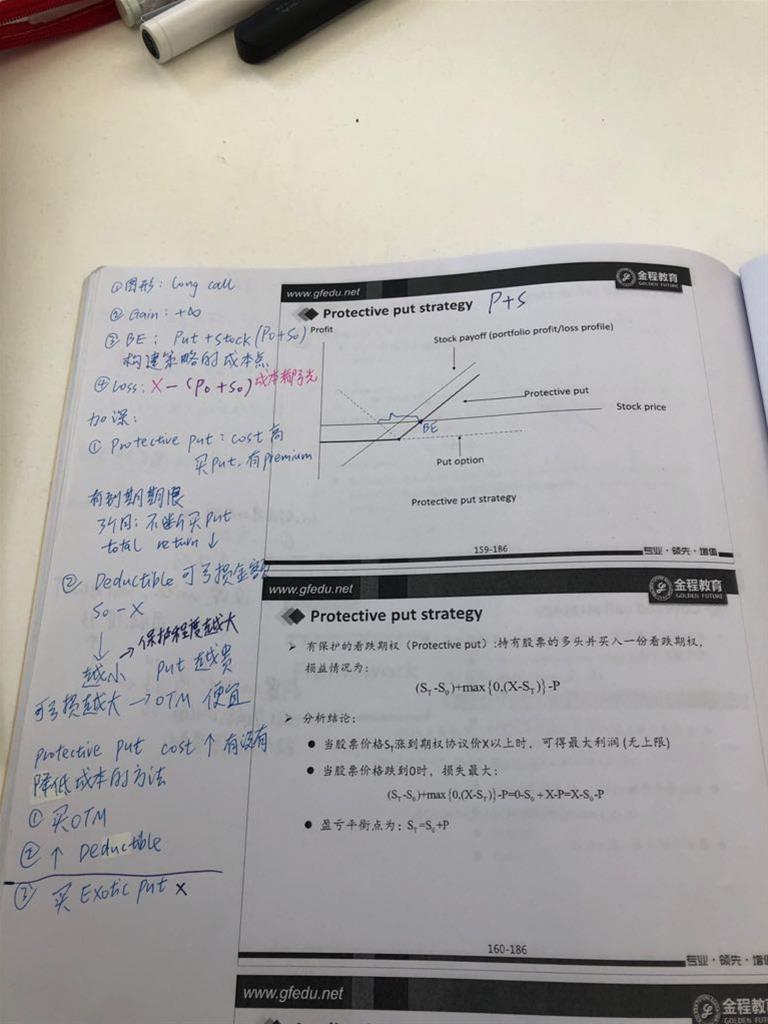 ①图形: Long call
② Gain: +∞
③ BE: Put + Stock (P0+S0)
构建策略的成本点
④ Loss: X - (P0+S0) 成本
加深:
① Protective put: cost 高
买put, 有premium
有到期期限
3个月: 不断买put
total return ↓
② Deductible 可亏损金额
S0-X
↓ → 保护程度越大
越小 put 越贵
可亏损越大 → OTM 便宜
Protective put cost ↑ 有没有
降低成本的方法
① 买OTM
② ↑ Deductible
③ 买 Exotic put ×
www.gfedu.net
金程教育
GOLDEN FUTURE
Protective put strategy P+S
Profit
Stock payoff (portfolio profit/loss profile)
Protective put
Stock price
BE
Put option
Protective put strategy
159-186
专业·领先·增值
www.gfedu.net
金程教育
GOLDEN FUTURE
Protective put strategy
有保护的看跌期权（Protective put）:持有股票的多头并买入一份看跌期权,
损益情况为:
(ST-S0)+max{0,(X-ST)}-P
分析结论:
当股票价格ST涨到期权协议价X以上时，可得最大利润 (无上限)
当股票价格跌到0时，损失最大:
(ST-S0)+max{0,(X-ST)}-P=0-S0+X-P=X-S0-P
盈亏平衡点为: ST=S0+P
160-186
专业·领先·增值
www.gfedu.net
金程教育
GOLDEN FUTURE